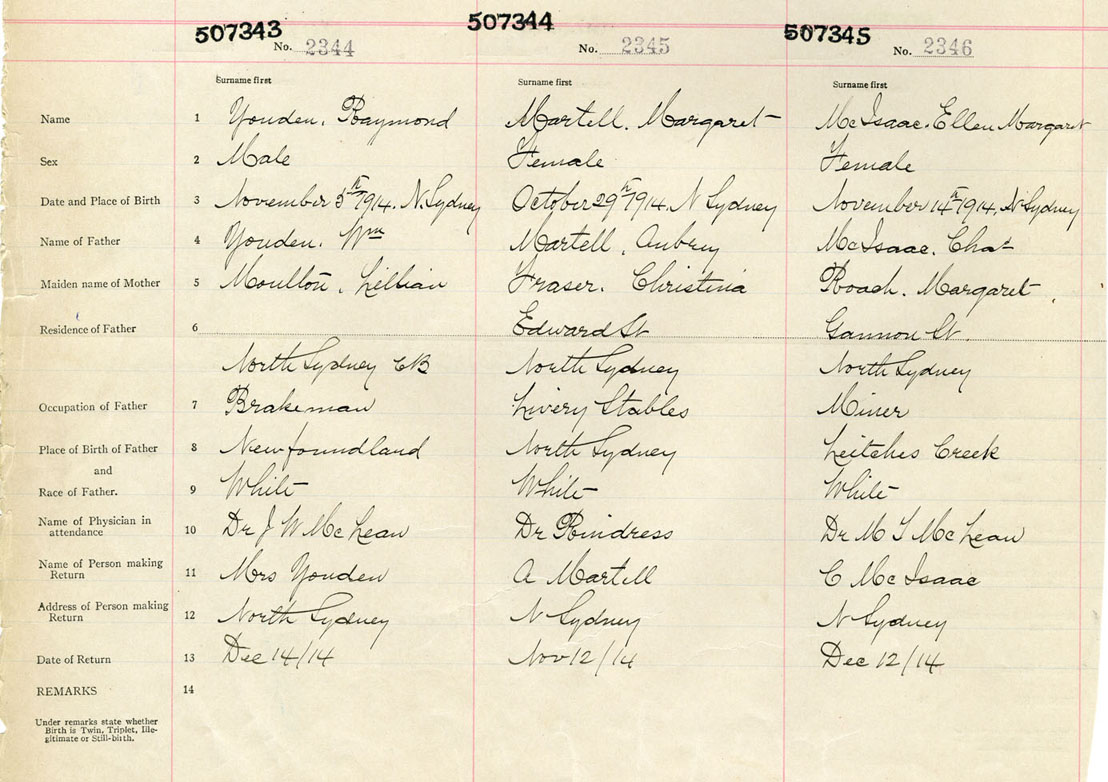 507343 507344 507345
No. 2344 No. 2345 No. 2346
Surname first Surname first Surname first
Name 1 Youden, Raymond Martell, Margaret McIsaac, Ellen Margaret
Sex 2 Male Female Female
Date and Place of Birth 3 November 5th 1914, N. Sydney October 29th 1914, N Sydney November 14th 1914, N Sydney
Name of Father 4 Youden, Wm Martell, Aubrey McIsaac, Chas
Maiden name of Mother 5 Moulton, Lillian Fraser, Christina Roach, Margaret
Residence of Father 6 Edward St Gannon St.
North Sydney CB North Sydney North Sydney
Occupation of Father 7 Brakeman Livery Stables Miner
Place of Birth of Father 8 Newfoundland North Sydney Leitches Creek
and
Race of Father. 9 White White White
Name of Physician in attendance 10 Dr J W McLean Dr Rindress Dr M T McLean
Name of Person making Return 11 Mrs Youden A Martell C McIsaac
Address of Person making Return 12 North Sydney N Sydney N Sydney
Date of Return 13 Dec 14/14 Nov 12/14 Dec 12/14
REMARKS 14
Under remarks state whether
Birth is Twin, Triplet, Ille-
gitimate or Still-birth.